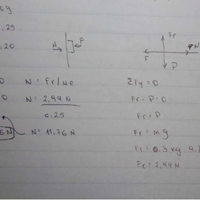 .25
.20
N
P
Fr
r
N
P
N = Fr/μe
N = 2,94 N
0.25
N = 11.76 N
ΣFy = 0
Fr - P = 0
Fr = P
Fr = mg
Fr = 0.3 kg · 9.
Fr = 2,94 N